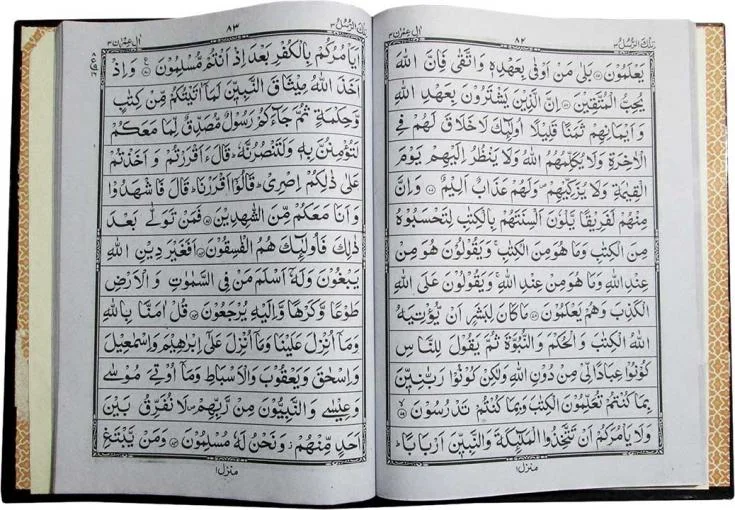 تلك الرسل ٣
٨٢
اٰل عمرٰن ٣
يَعْلَمُوْنَ ۝ بَلٰى مَنْ اَوْفٰى بِعَهْدِهٖ وَاتَّقٰى فَاِنَّ اللّٰهَ
يُحِبُّ الْمُتَّقِيْنَ ۝ اِنَّ الَّذِيْنَ يَشْتَرُوْنَ بِعَهْدِ اللّٰهِ
وَ اَيْمَانِهِمْ ثَمَنًا قَلِيْلًا اُولٰٓئِكَ لَا خَلَاقَ لَهُمْ فِي
الْاٰخِرَةِ وَلَا يُكَلِّمُهُمُ اللّٰهُ وَلَا يَنْظُرُ اِلَيْهِمْ يَوْمَ
الْقِيٰمَةِ وَلَا يُزَكِّيْهِمْ ۪ وَلَهُمْ عَذَابٌ اَلِيْمٌ ۝ وَاِنَّ
مِنْهُمْ لَفَرِيْقًا يَّلْوٗنَ اَلْسِنَتَهُمْ بِالْكِتٰبِ لِتَحْسَبُوْهُ
مِنَ الْكِتٰبِ وَمَا هُوَ مِنَ الْكِتٰبِ ۚ وَيَقُوْلُوْنَ هُوَ مِنْ
عِنْدِ اللّٰهِ وَمَا هُوَ مِنْ عِنْدِ اللّٰهِ ۚ وَيَقُوْلُوْنَ عَلَى اللّٰهِ
الْكَذِبَ وَهُمْ يَعْلَمُوْنَ ۝ مَا كَانَ لِبَشَرٍ اَنْ يُّؤْتِيَهُ
اللّٰهُ الْكِتٰبَ وَالْحُكْمَ وَالنُّبُوَّةَ ثُمَّ يَقُوْلَ لِلنَّاسِ
كُوْنُوْا عِبَادًا لِّيْ مِنْ دُوْنِ اللّٰهِ وَلٰكِنْ كُوْنُوْا رَبّٰنِيّٖنَ
بِمَا كُنْتُمْ تُعَلِّمُوْنَ الْكِتٰبَ وَبِمَا كُنْتُمْ تَدْرُسُوْنَ ۝
وَلَا يَاْمُرَكُمْ اَنْ تَتَّخِذُوا الْمَلٰٓئِكَةَ وَالنَّبِيّٖنَ اَرْبَابًا ؕ
منزل ١
تلك الرسل ٣
٨٣
اٰل عمرٰن ٣
اَيَاْمُرُكُمْ بِالْكُفْرِ بَعْدَ اِذْ اَنْتُمْ مُّسْلِمُوْنَ ۝ وَاِذْ
اَخَذَ اللّٰهُ مِيْثَاقَ النَّبِيّٖنَ لَمَآ اٰتَيْتُكُمْ مِّنْ كِتٰبٍ
وَّحِكْمَةٍ ثُمَّ جَآءَكُمْ رَسُوْلٌ مُّصَدِّقٌ لِّمَا مَعَكُمْ
لَتُؤْمِنُنَّ بِهٖ وَلَتَنْصُرُنَّهٗ ؕ قَالَ ءَاَقْرَرْتُمْ وَاَخَذْتُمْ
عَلٰى ذٰلِكُمْ اِصْرِيْ ؕ قَالُوْٓا اَقْرَرْنَا ؕ قَالَ فَاشْهَدُوْا
وَاَنَا مَعَكُمْ مِّنَ الشّٰهِدِيْنَ ۝ فَمَنْ تَوَلّٰى بَعْدَ
ذٰلِكَ فَاُولٰٓئِكَ هُمُ الْفٰسِقُوْنَ ۝ اَفَغَيْرَ دِيْنِ اللّٰهِ
يَبْغُوْنَ وَلَهٗٓ اَسْلَمَ مَنْ فِي السَّمٰوٰتِ وَالْاَرْضِ
طَوْعًا وَّكَرْهًا وَّاِلَيْهِ يُرْجَعُوْنَ ۝ قُلْ اٰمَنَّا بِاللّٰهِ
وَمَآ اُنْزِلَ عَلَيْنَا وَمَآ اُنْزِلَ عَلٰٓى اِبْرٰهِيْمَ وَاِسْمٰعِيْلَ
وَاِسْحٰقَ وَيَعْقُوْبَ وَالْاَسْبَاطِ وَمَآ اُوْتِيَ مُوْسٰى
وَعِيْسٰى وَالنَّبِيُّوْنَ مِنْ رَّبِّهِمْ ۪ لَا نُفَرِّقُ بَيْنَ
اَحَدٍ مِّنْهُمْ ۡ وَنَحْنُ لَهٗ مُسْلِمُوْنَ ۝ وَمَنْ يَّبْتَغِ
منزل ١